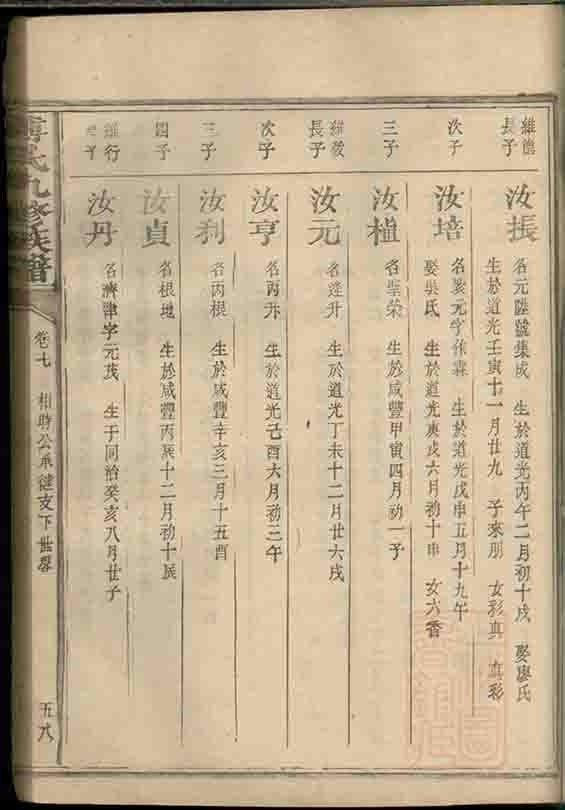 維德
長子
汝振
名元陞號集成 生於道光丙午二月初十戌 娶廖氏
生於道光壬寅十一月廿九 子來朋 女彩真 真彩
次子
汝培
名晏元字作霖 生於道光戊申五月十九午
娶吳氏 生於道光庚戌六月初十申 女六香
三子
汝植
名崇榮 生於咸豐甲寅四月初一子
維發
長子
汝元
名逢升 生於道光丁未十二月廿六戌
次子
汝亨
名丙升 生於道光己酉六月初三午
三子
汝利
名丙根 生於咸豐辛亥三月十五酉
四子
汝貞
名根地 生於咸豐丙辰十二月初十辰
維行
汝丹
名濟津字元茂 生于同治癸亥八月廿子
氏九修族譜
卷七
相時公承健支下世畧
五八